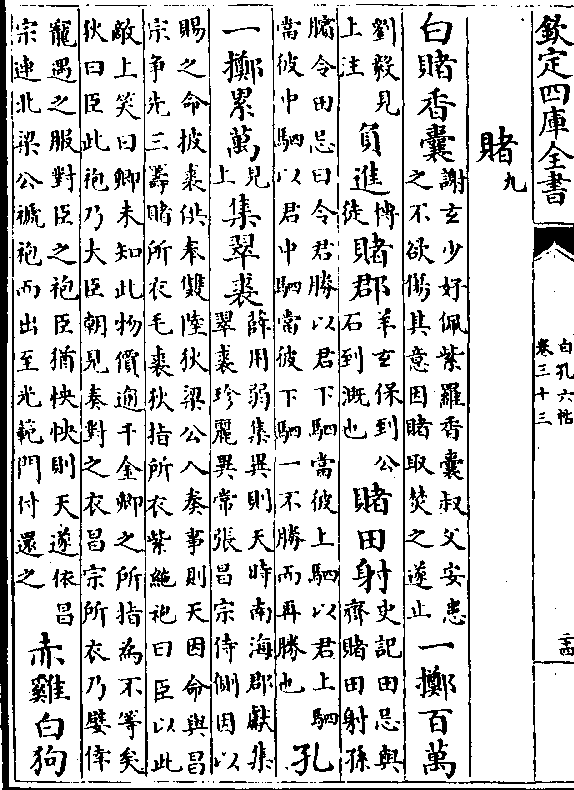 欽定四庫全書
白孔六帖
卷三十三
賭九
白賭香囊謝玄少好佩紫羅香囊叔父安患
之不欲傷其意因賭取焚之遂止一擲百萬
劉毅見
上注負進博
徒賭郡羊玄保到公
石到溉也賭田射史記田忌與
齊賭田射孫
臏令田忌曰令君勝以君下駟當彼上駟以君上駟
當彼中駟以君中駟當彼下駟一不勝而再勝也孔
一擲累萬見
上集翠裘薛用弱集異則天時南海郡獻集
翠裘珍麗異常張昌宗侍側因以
賜之命披裘供奉雙陸狄梁公入奏事則天因命與昌
宗爭先三籌賭所衣毛裘狄指所衣紫絁袍曰臣以此
敵上笑曰卿未知此物價逾千金卿之所指為不等矣
狄曰臣此袍乃大臣朝見奏對之衣昌宗所衣乃嬖倖
寵遇之服對臣之袍臣猶怏怏則天遂依昌
宗連北梁公褫袍而出至光範門付還之赤雞白狗